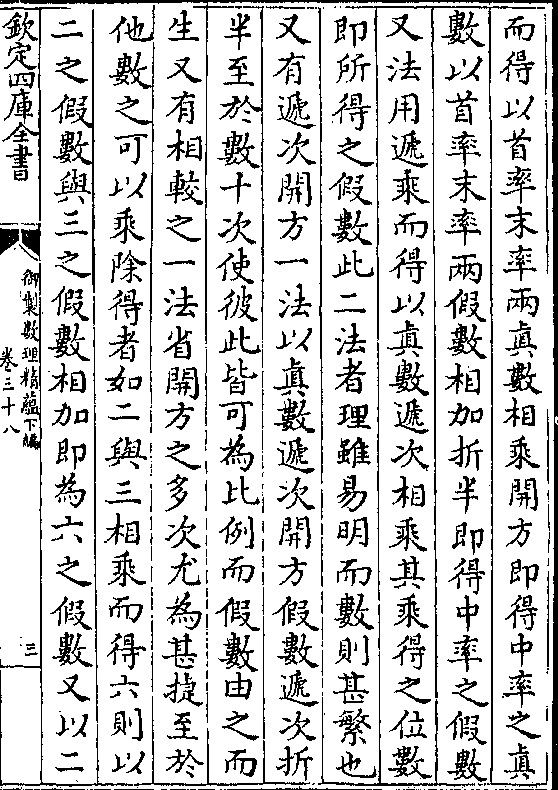 而得以首率末率兩真數相乘開方即得中率之真
數以首率末率兩假數相加折半即得中率之假數
又法用遞乘而得以真數遞次相乘其乘得之位數
即所得之假數此二法者理雖易明而數則甚繁也
又有遞次開方一法以真數遞次開方假數遞次折
半至於數十次使彼此皆可為比例而假數由之而
生又有相較之一法省開方之多次尤為甚捷至於
他數之可以乘除得者如二與三相乘而得六則以
二之假數與三之假數相加即為六之假數又以二
欽定四庫全書
御製數理精蘊下編
卷三十八
三